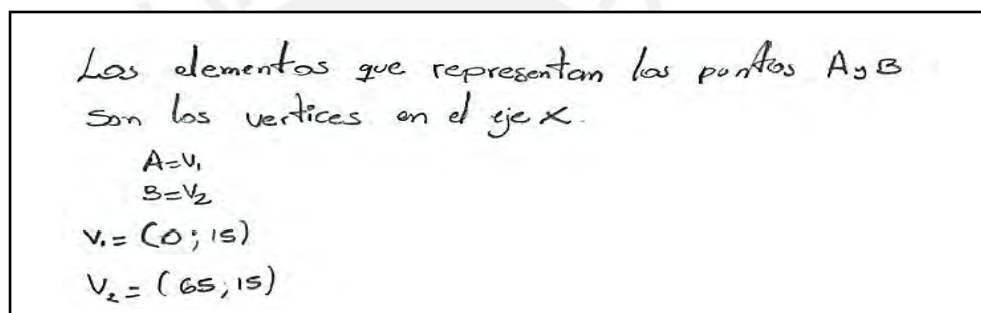 Los elementos que representan los puntos A y B
son los vertices en el eje x.
A=V₁
B=V₂
V₁ = (0; 15)
V₂ = (65; 15)